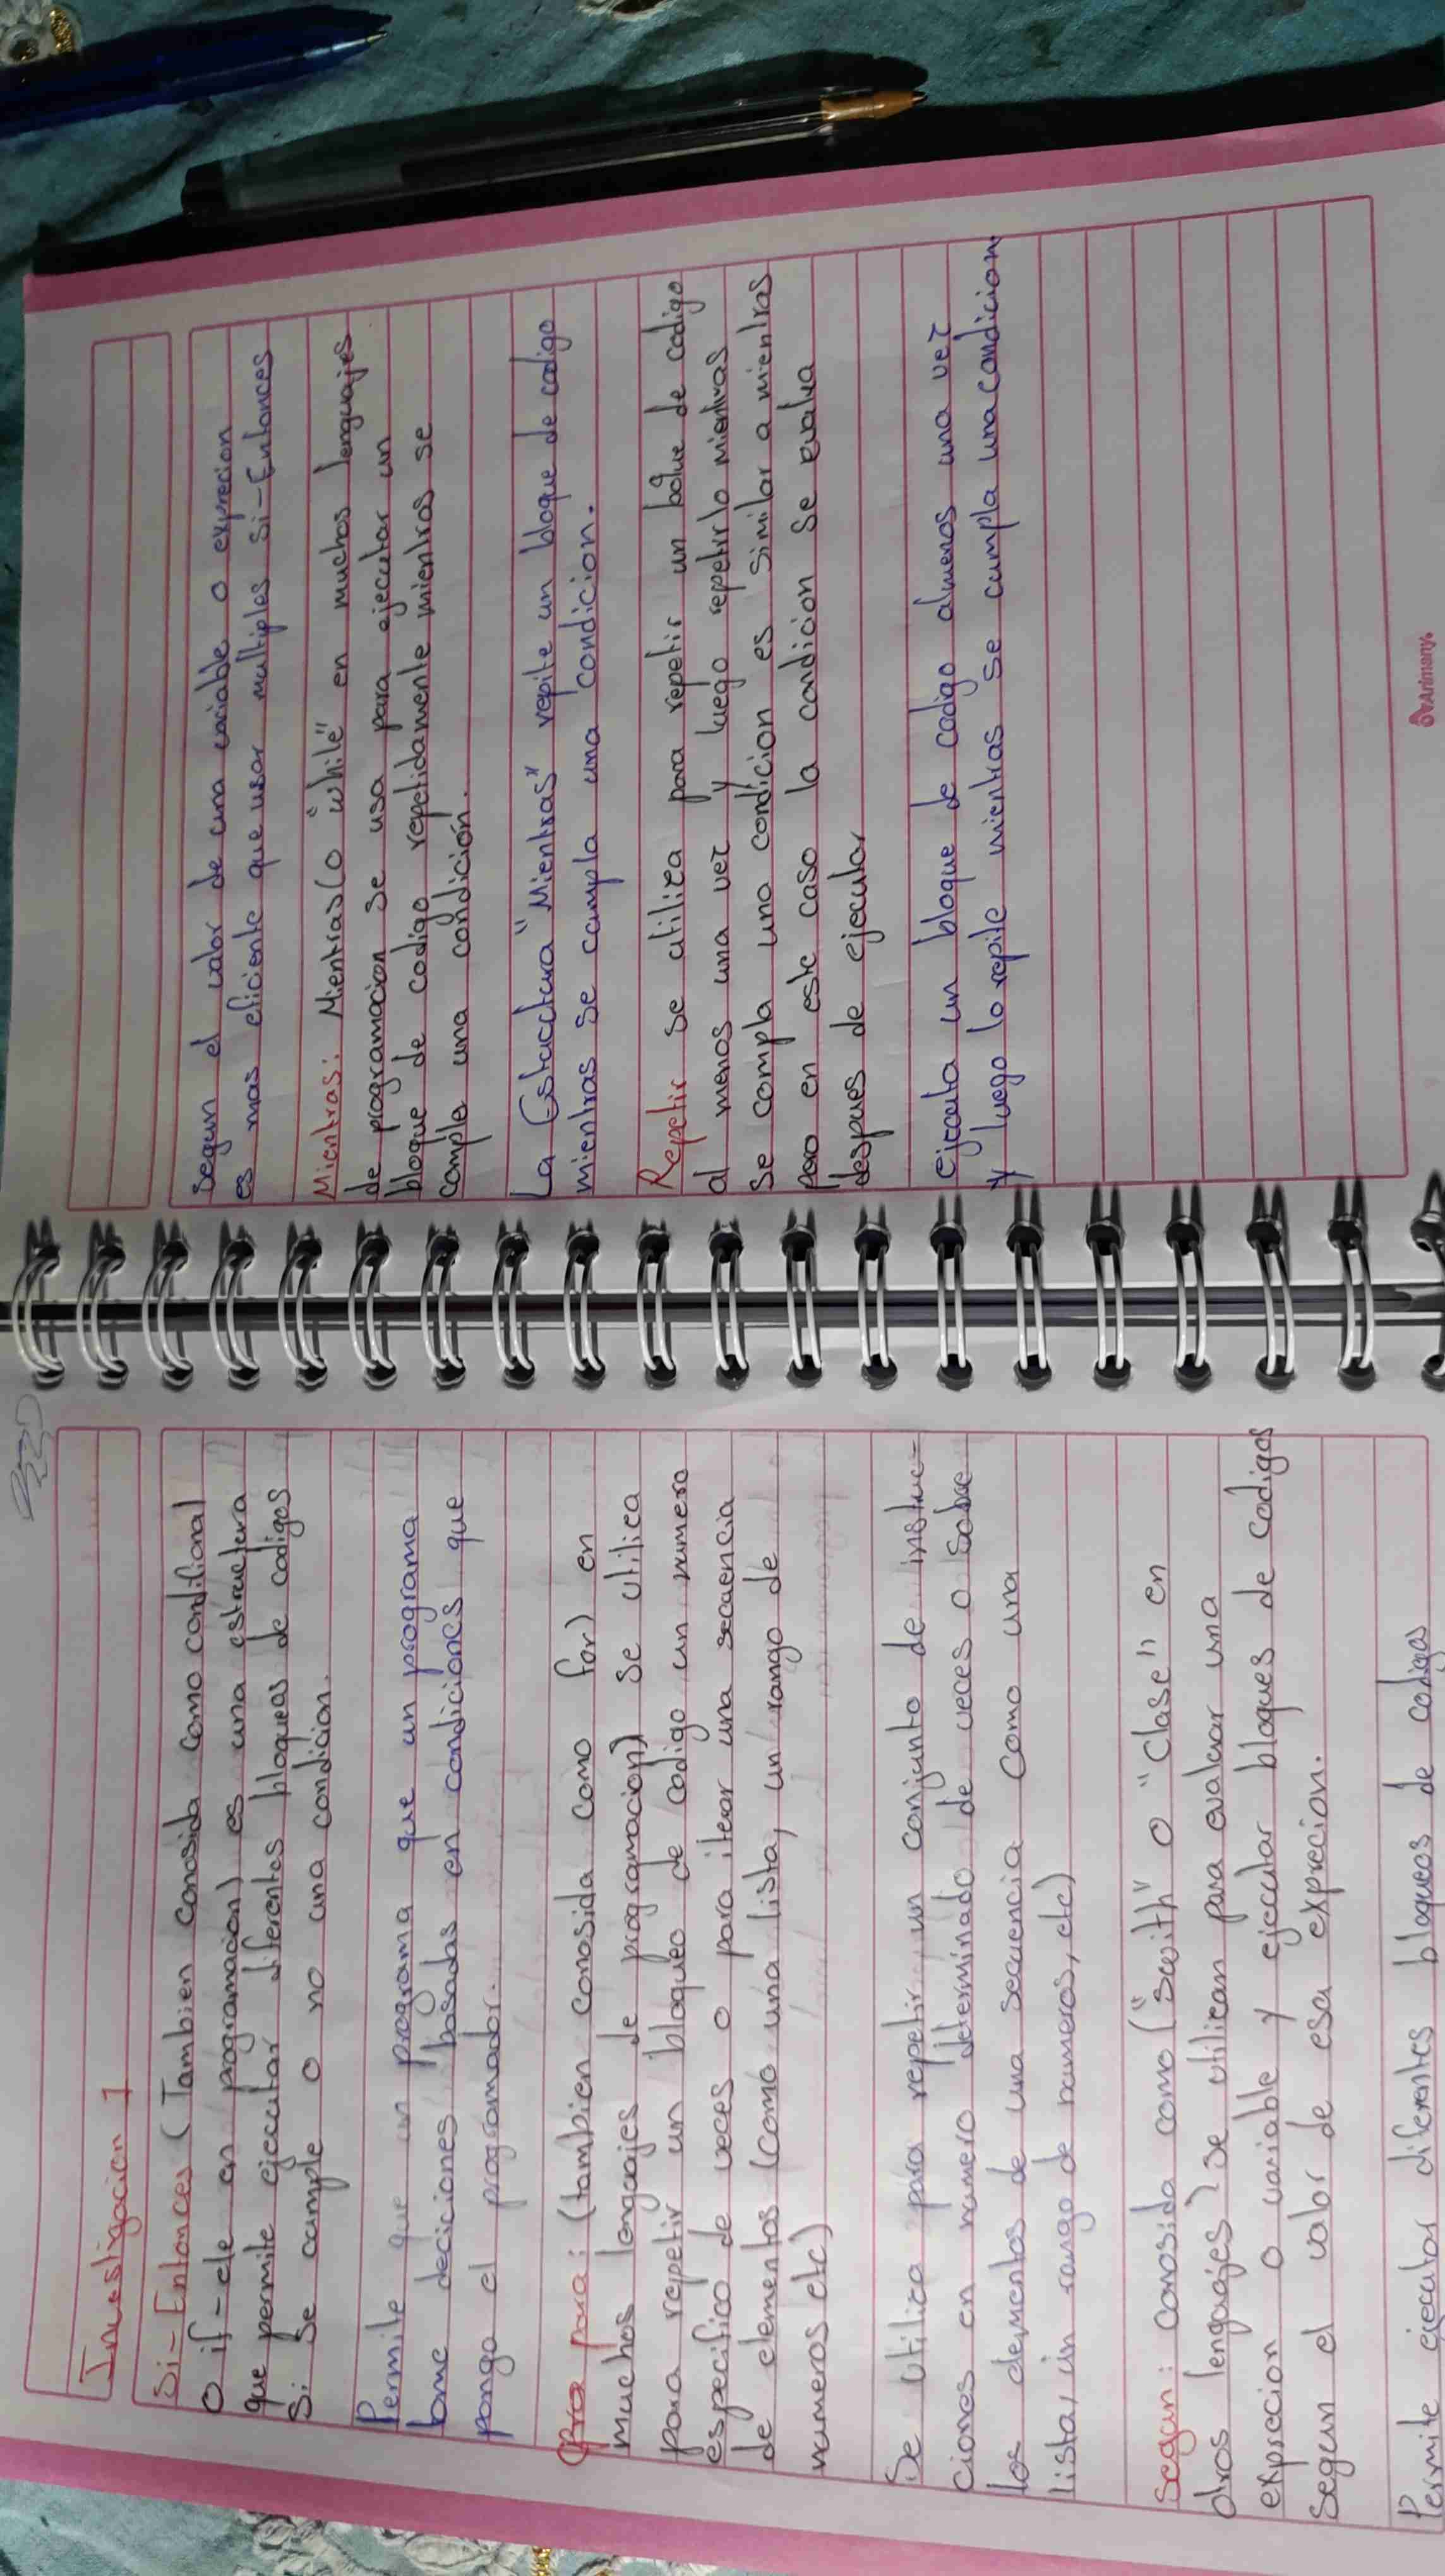 Investigacion 1
Si-Entonces (Tambien conosida como condifional
O if-ele en programacion) es una estructura
que permite ejecutar diferentes bloqueas de codigos
Si se cumple o no una condicion.
Permite que un programa que un programa
tome deciciones basadas en condiciones que
ponga el programador.
para: (tambien conosida como for) en
muchos lengoajes de programacion) se utilica
para repetir un bloqueo de codigo un numero
especifico de veces o para iterar una secuencia
de elementos (como una lista, un rango de
numeros etc)
Se Utilica para repetir un conjunto de instruc-
ciones en numero determinado de veces o sobre
los elementos de una secuencia como una
lista, un rango de numeros, etc)
Segun: conosida como ("swith" o "clase" en
otros lengoajes) se utilican para evaluar una
exprecion o variable y ejecular bloques de codigos
segun el valor de esa exprecion.
Permite ejecutar diferentes bloqueos de codigos
segun el valor de una variable o exprecion
es mas eficiente que usar multiples Si-Entonces
Mientras: Mientras(o "while" en muchos lenguajes
de programacion se usa para ejecutar un
bloque de codigo repetidamente mientros se
comple una condición.
La Estucctura "Mientras" repite un bloque de codigo
mientras se campla una condicion.
Repetir se utiliza para repetir un bolue de codigo
al menos una vez y luego repetirlo mientras
se compla una condicion es similar a mientras
pero en este caso la condicion se evalua
despues de ejecular
ejecuta un bloque de codigo almenos una vez
y luego lo repite mientras se cumpla una condicion.
Arimany.